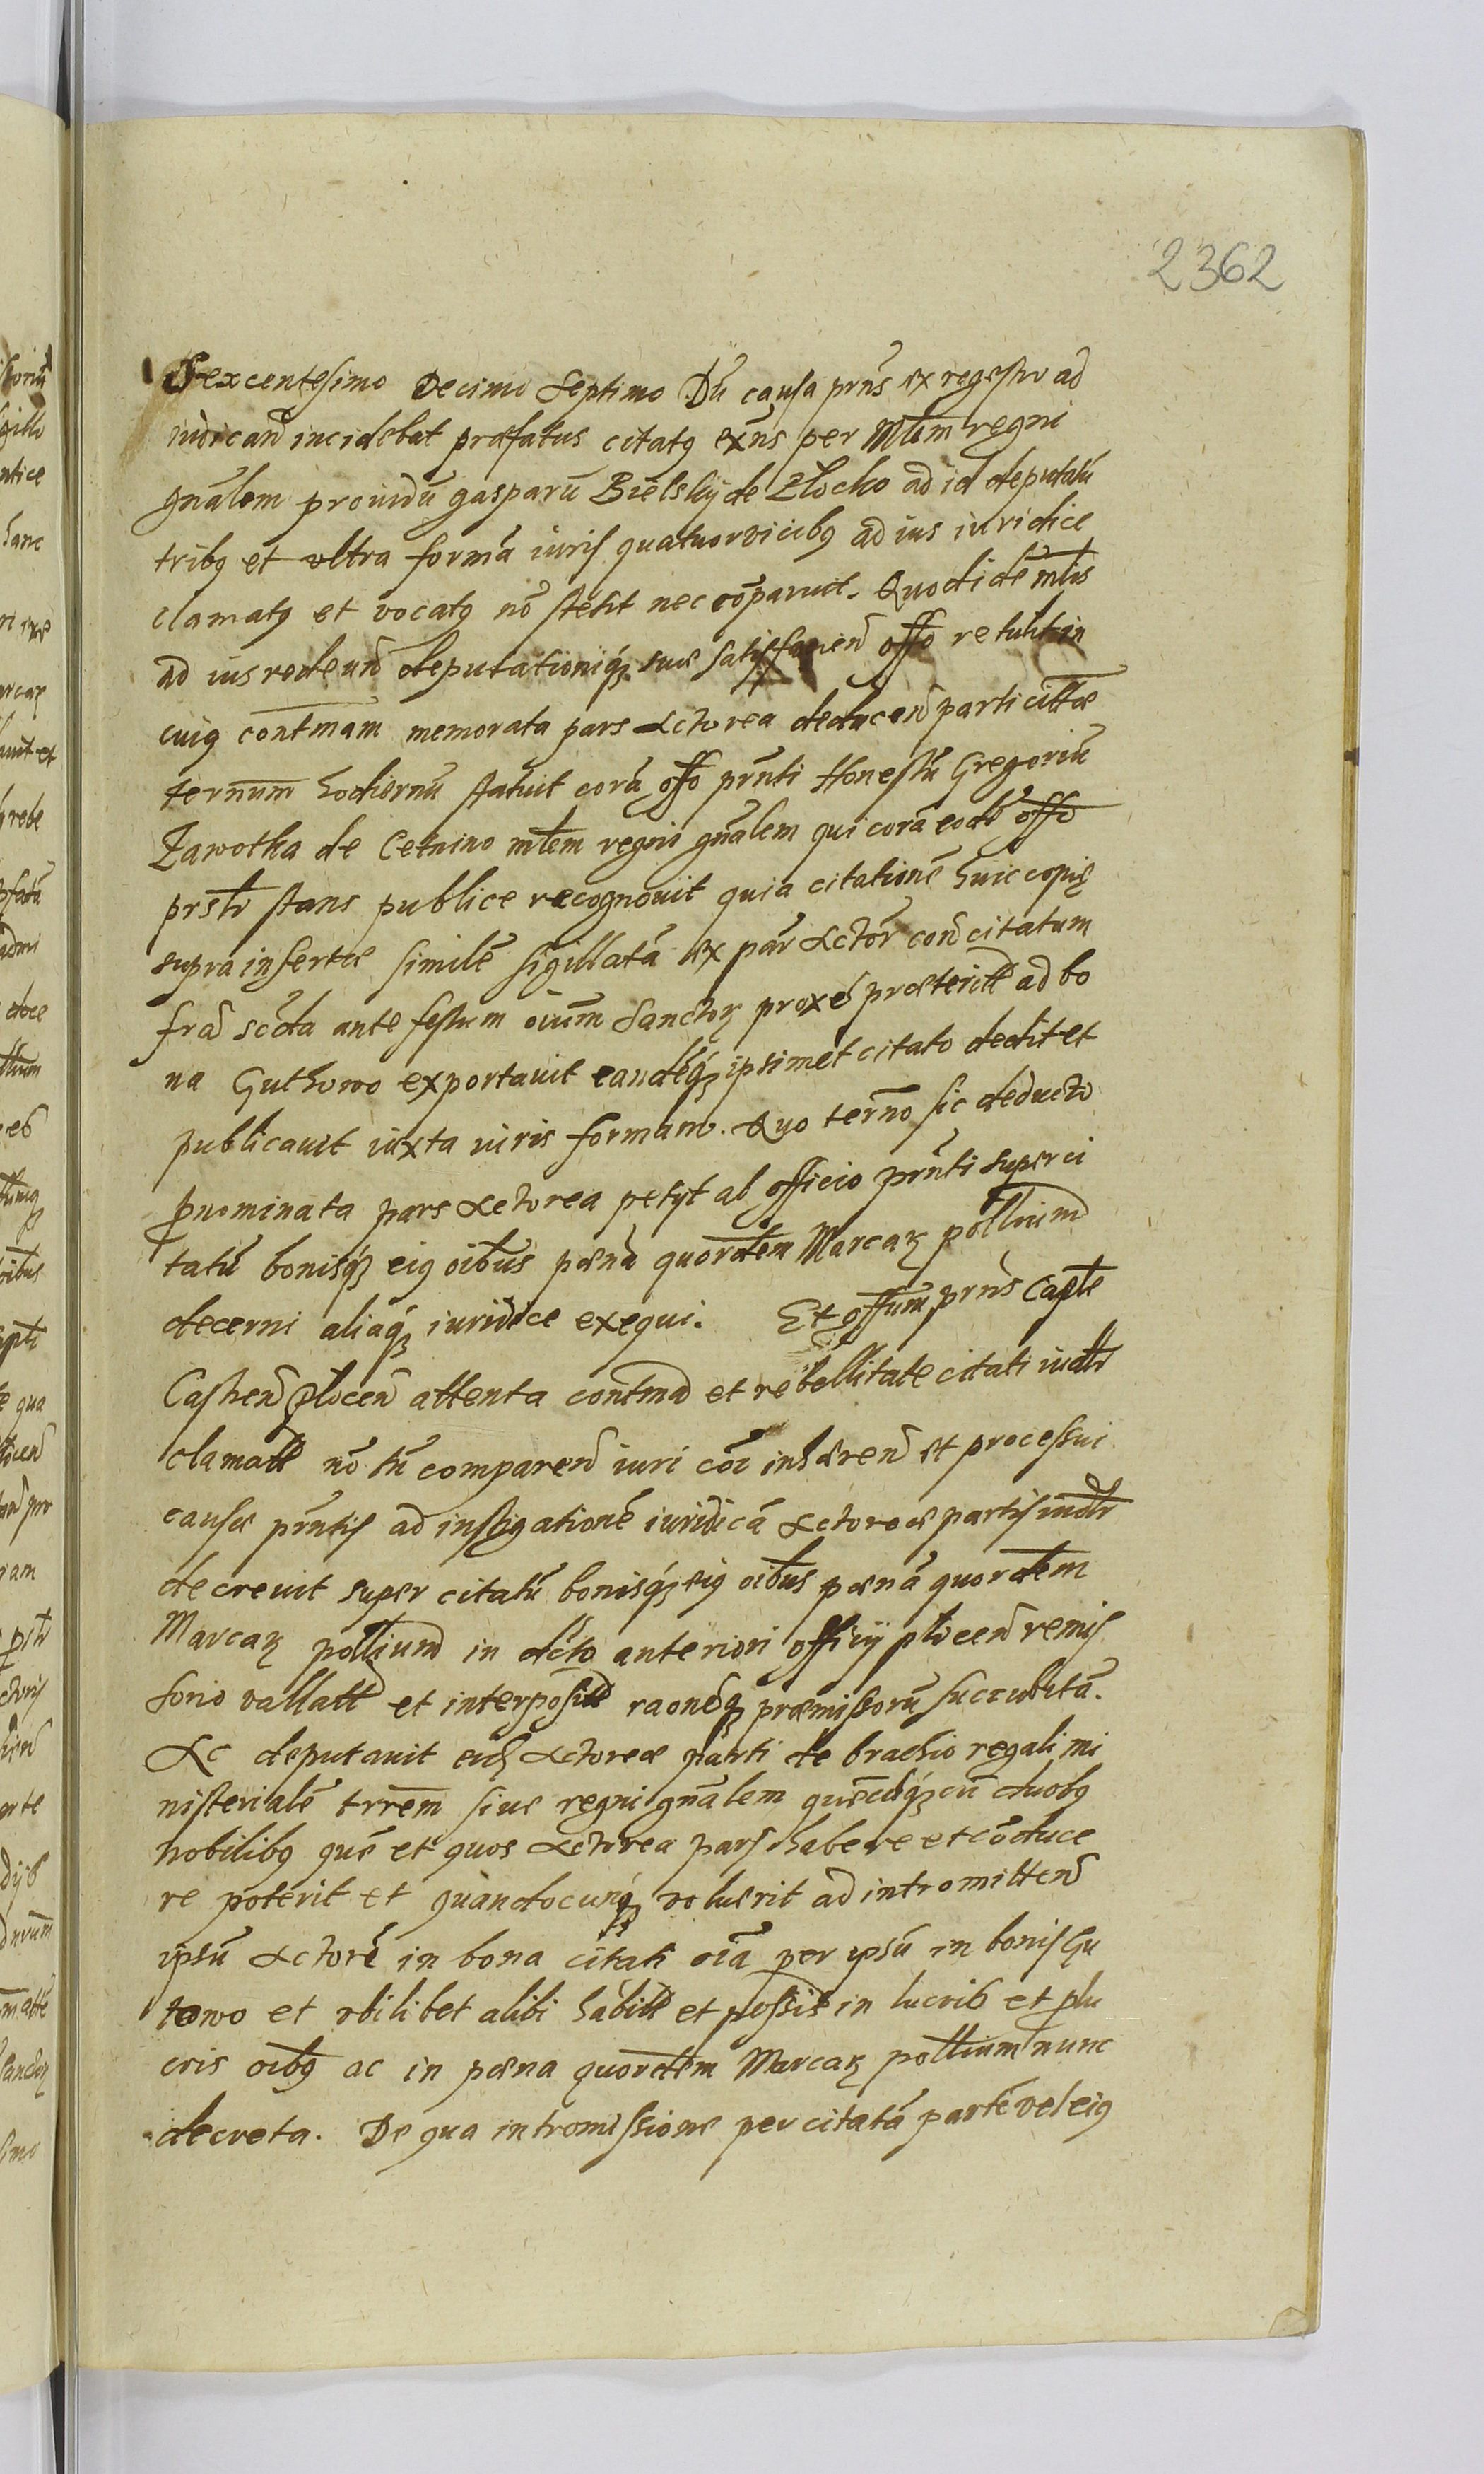 2362
Sexcentesimo Decimo Septimo Dũ causa prñs ex regestro ad
iudicand incidebat præfatus citatq exñs per Mtlem regni
gnãlem prouidũ gasparũ Bielskij de Zlocko ad id deputatũ
tribq et vltra formã iuris quatuor vicibq ad ius iuridice
clamatq et vocatq nõ stetit nec cõparuit. Quod idẽ mtlis
ad ius redeund deputationiq₃ suæ satisfaciend offo retulit in
cuiq contmam memorata pars Actorea deducend parti cittæ
termum hodiernũ statuit corã offo prñti Honestũ Gregoriũ
Zawotka de Cetnino mtlem regni gnãlem qui corã eodẽ offo
prsto stans publice recognouit quia citationẽ huic copię
supra insertæ similẽ sigillatã ex par Actor con citatum
fra scda ante festum oium Sanctoꝝ proxe præterit ad bo
na Guthowo exportauit eandẽq₃ ipsimet citato dedit et
publicauit iuxta iuris formam. Quo termo sic deducto
prænominata pars Actorea petyt ab officio prñti super ci
tatũ bonisq₃ eiq oibus pænã quordtem Marcaꝝ pollium
decerni aliaq₃ iuridice exequi. Et offum prñs Capte
Castren plocen attenta contma et rebellitate citati iudtr
clamati nõ tñ comparen iuri cõi inhæren et processui
causæ prñtis ad instigationẽ iuridicã Actoreæ partis iudtr
decreuit super citatũ bonisq₃ eiq oibus pænã quordtem
Marcaꝝ pollium in dcto anteriori officij plocen remis
sorio vallatt et interposit raoneq₃ præmissorũ succubitã.
Ac deputauit eid Actoreæ parti de brachio regali mi
nisterialẽ trrem siue regni gnãlem quẽcũq₃ cũ duobq
nobilibq quẽ et quos Actorea pars habere et cõduce
re poterit et quandocunq₃ voluerit ad intromitten
ipsũ Actorẽ in bona citati oia per ipsũ in bonis Gu
towo et vbilibet alibi habit et possis in lucrib et plu
cris oibq ac in pæna quordtem Marcaꝝ pollium nunc
decreta. De qua intromissione per citatã partẽ vel eiq